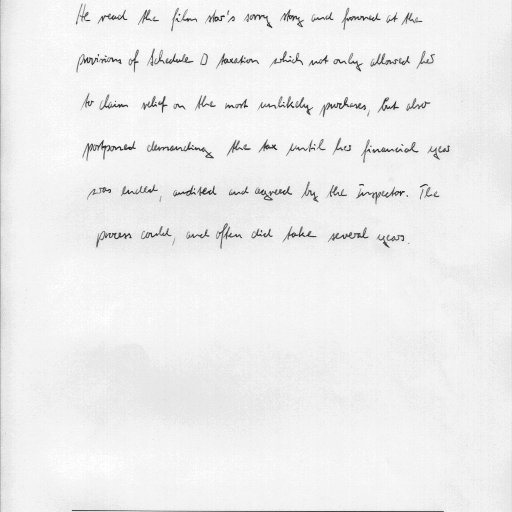 He read the film star's sorry story and frowned at the
provisions of Schedule D taxation which not only allowed her
to claim relief on the most unlikely purchases, but also
postponed demanding the tax until her financial year
was ended, audited and agreed by the Inspector. The
process could, and often did take several years.